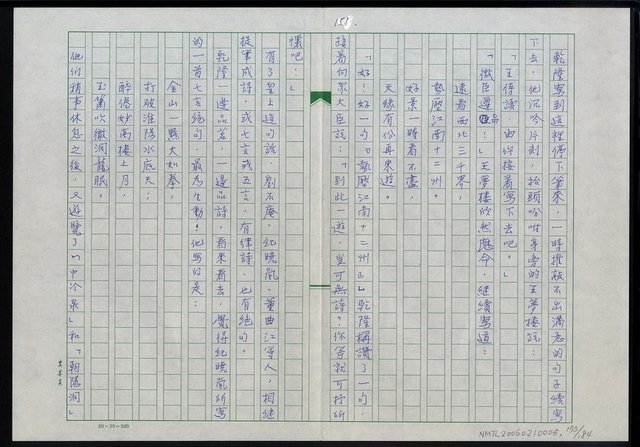 151.
乾隆寫到這裡停下筆來,一時推敲不出滿意的句子續寫
下去,他沉吟片刻,抬頭吩咐身旁的王夢樓說:
「王侍讀,由你接著寫下去吧。」
「微臣遵品!」王夢樓欣然應命,繼續寫道:
遠看西北三千界,
勢壓江南十二州。
好景一時看不盡,
天緣有份再來遊。
「好!好一句『勢壓江南十二州』」乾隆稱讚了一句
接着向眾大臣說:「到此一遊,豈可無詩?你等就可抒所
懷吧!」
有了皇上這句話,劉石庵、紀曉嵐、董曲江等人,相繼
提筆成詩,或七言或五言,有律詩,也有絕句。
乾隆一邊品茗,一邊品詩,看來看去,覺得紀曉嵐所寫
的一首七言絕句,最為生動!他寫的是:
金山一點大如拳,
打破淮陽水底天;
醉倦妙高樓上月,
玉簫吹徹洞龍眠。
他們稍事休息之後,又遊覽了「中冷泉」和「朝陽洞」
20×25=500
NMTL20050210005.
153/184